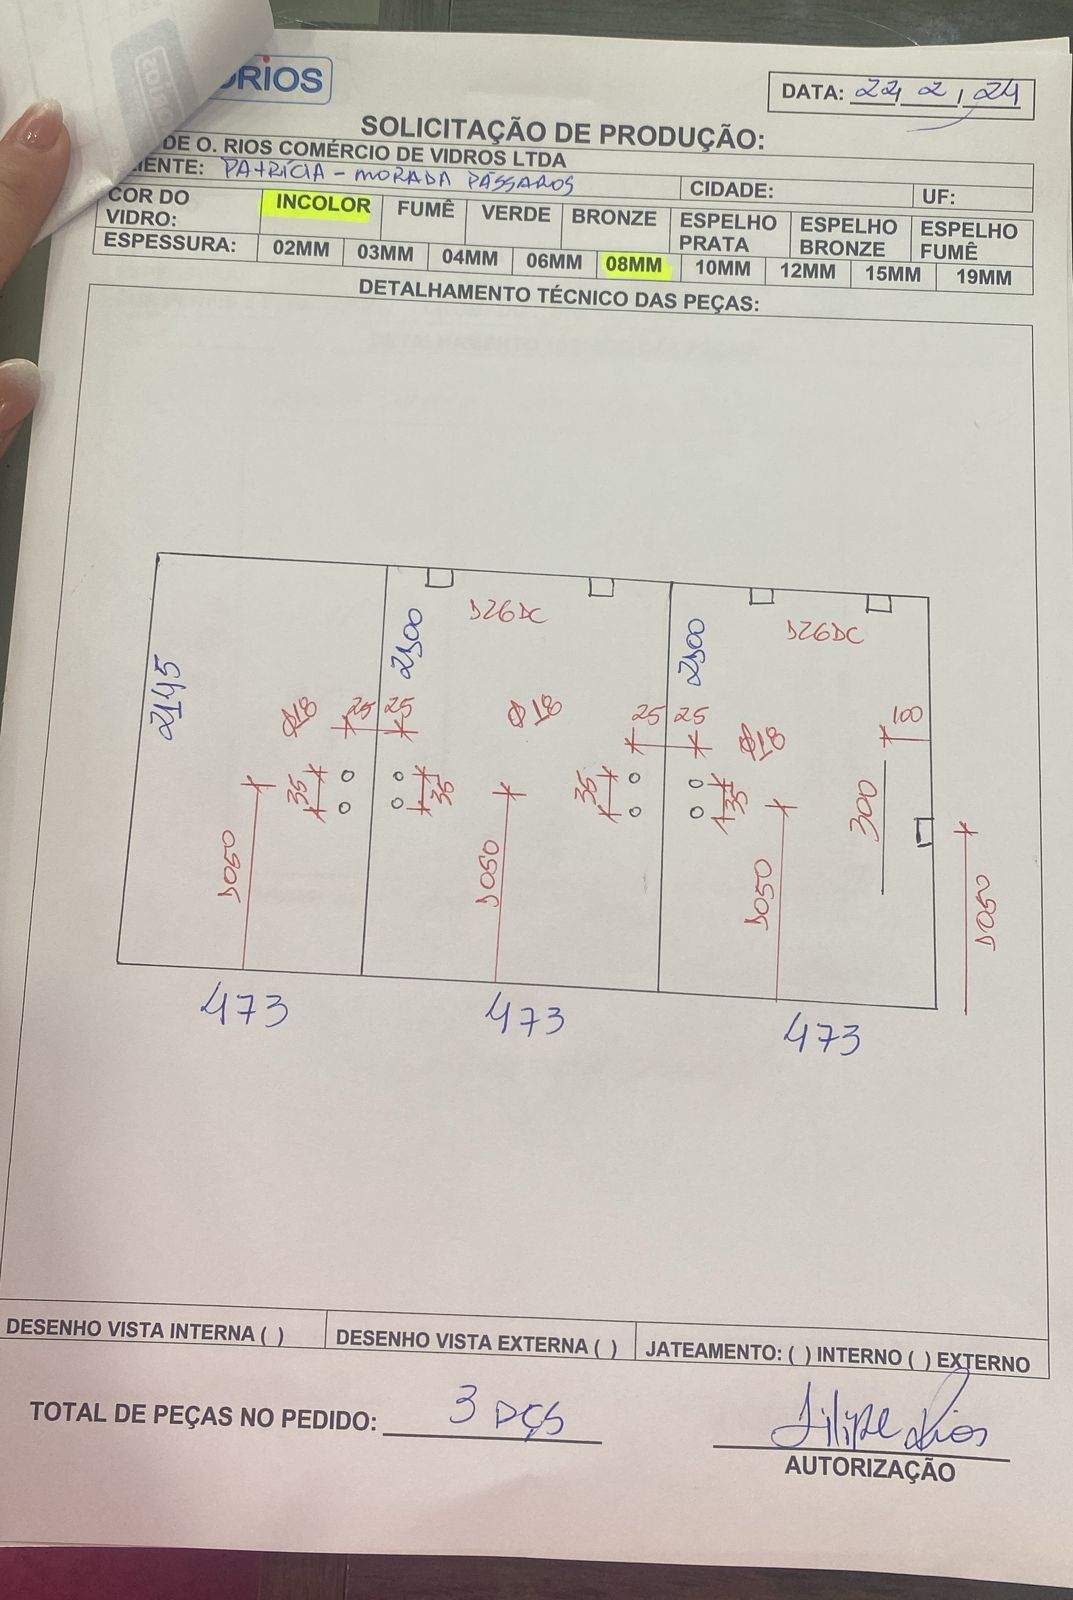 RIOS
DATA: 22, 2, 24
SOLICITAÇÃO DE PRODUÇÃO:
DE O. RIOS COMÉRCIO DE VIDROS LTDA
IENTE: PATRÍCIA - MORADA PÁSSAROS CIDADE: UF:
COR DO VIDRO: INCOLOR FUMÊ VERDE BRONZE ESPELHO PRATA ESPELHO BRONZE ESPELHO FUMÊ
ESPESSURA: 02MM 03MM 04MM 06MM 08MM 10MM 12MM 15MM 19MM
DETALHAMENTO TÉCNICO DAS PEÇAS:
D26DC D26DC
2145 2100 2100
Ø18 25 25 Ø18 25 25 Ø18 100
35 35 35 35 300
D050 D050 D050 D050
473 473 473
DESENHO VISTA INTERNA ( ) DESENHO VISTA EXTERNA ( ) JATEAMENTO: ( ) INTERNO ( ) EXTERNO
TOTAL DE PEÇAS NO PEDIDO: 3 PÇS
Filipe Rios
AUTORIZAÇÃO